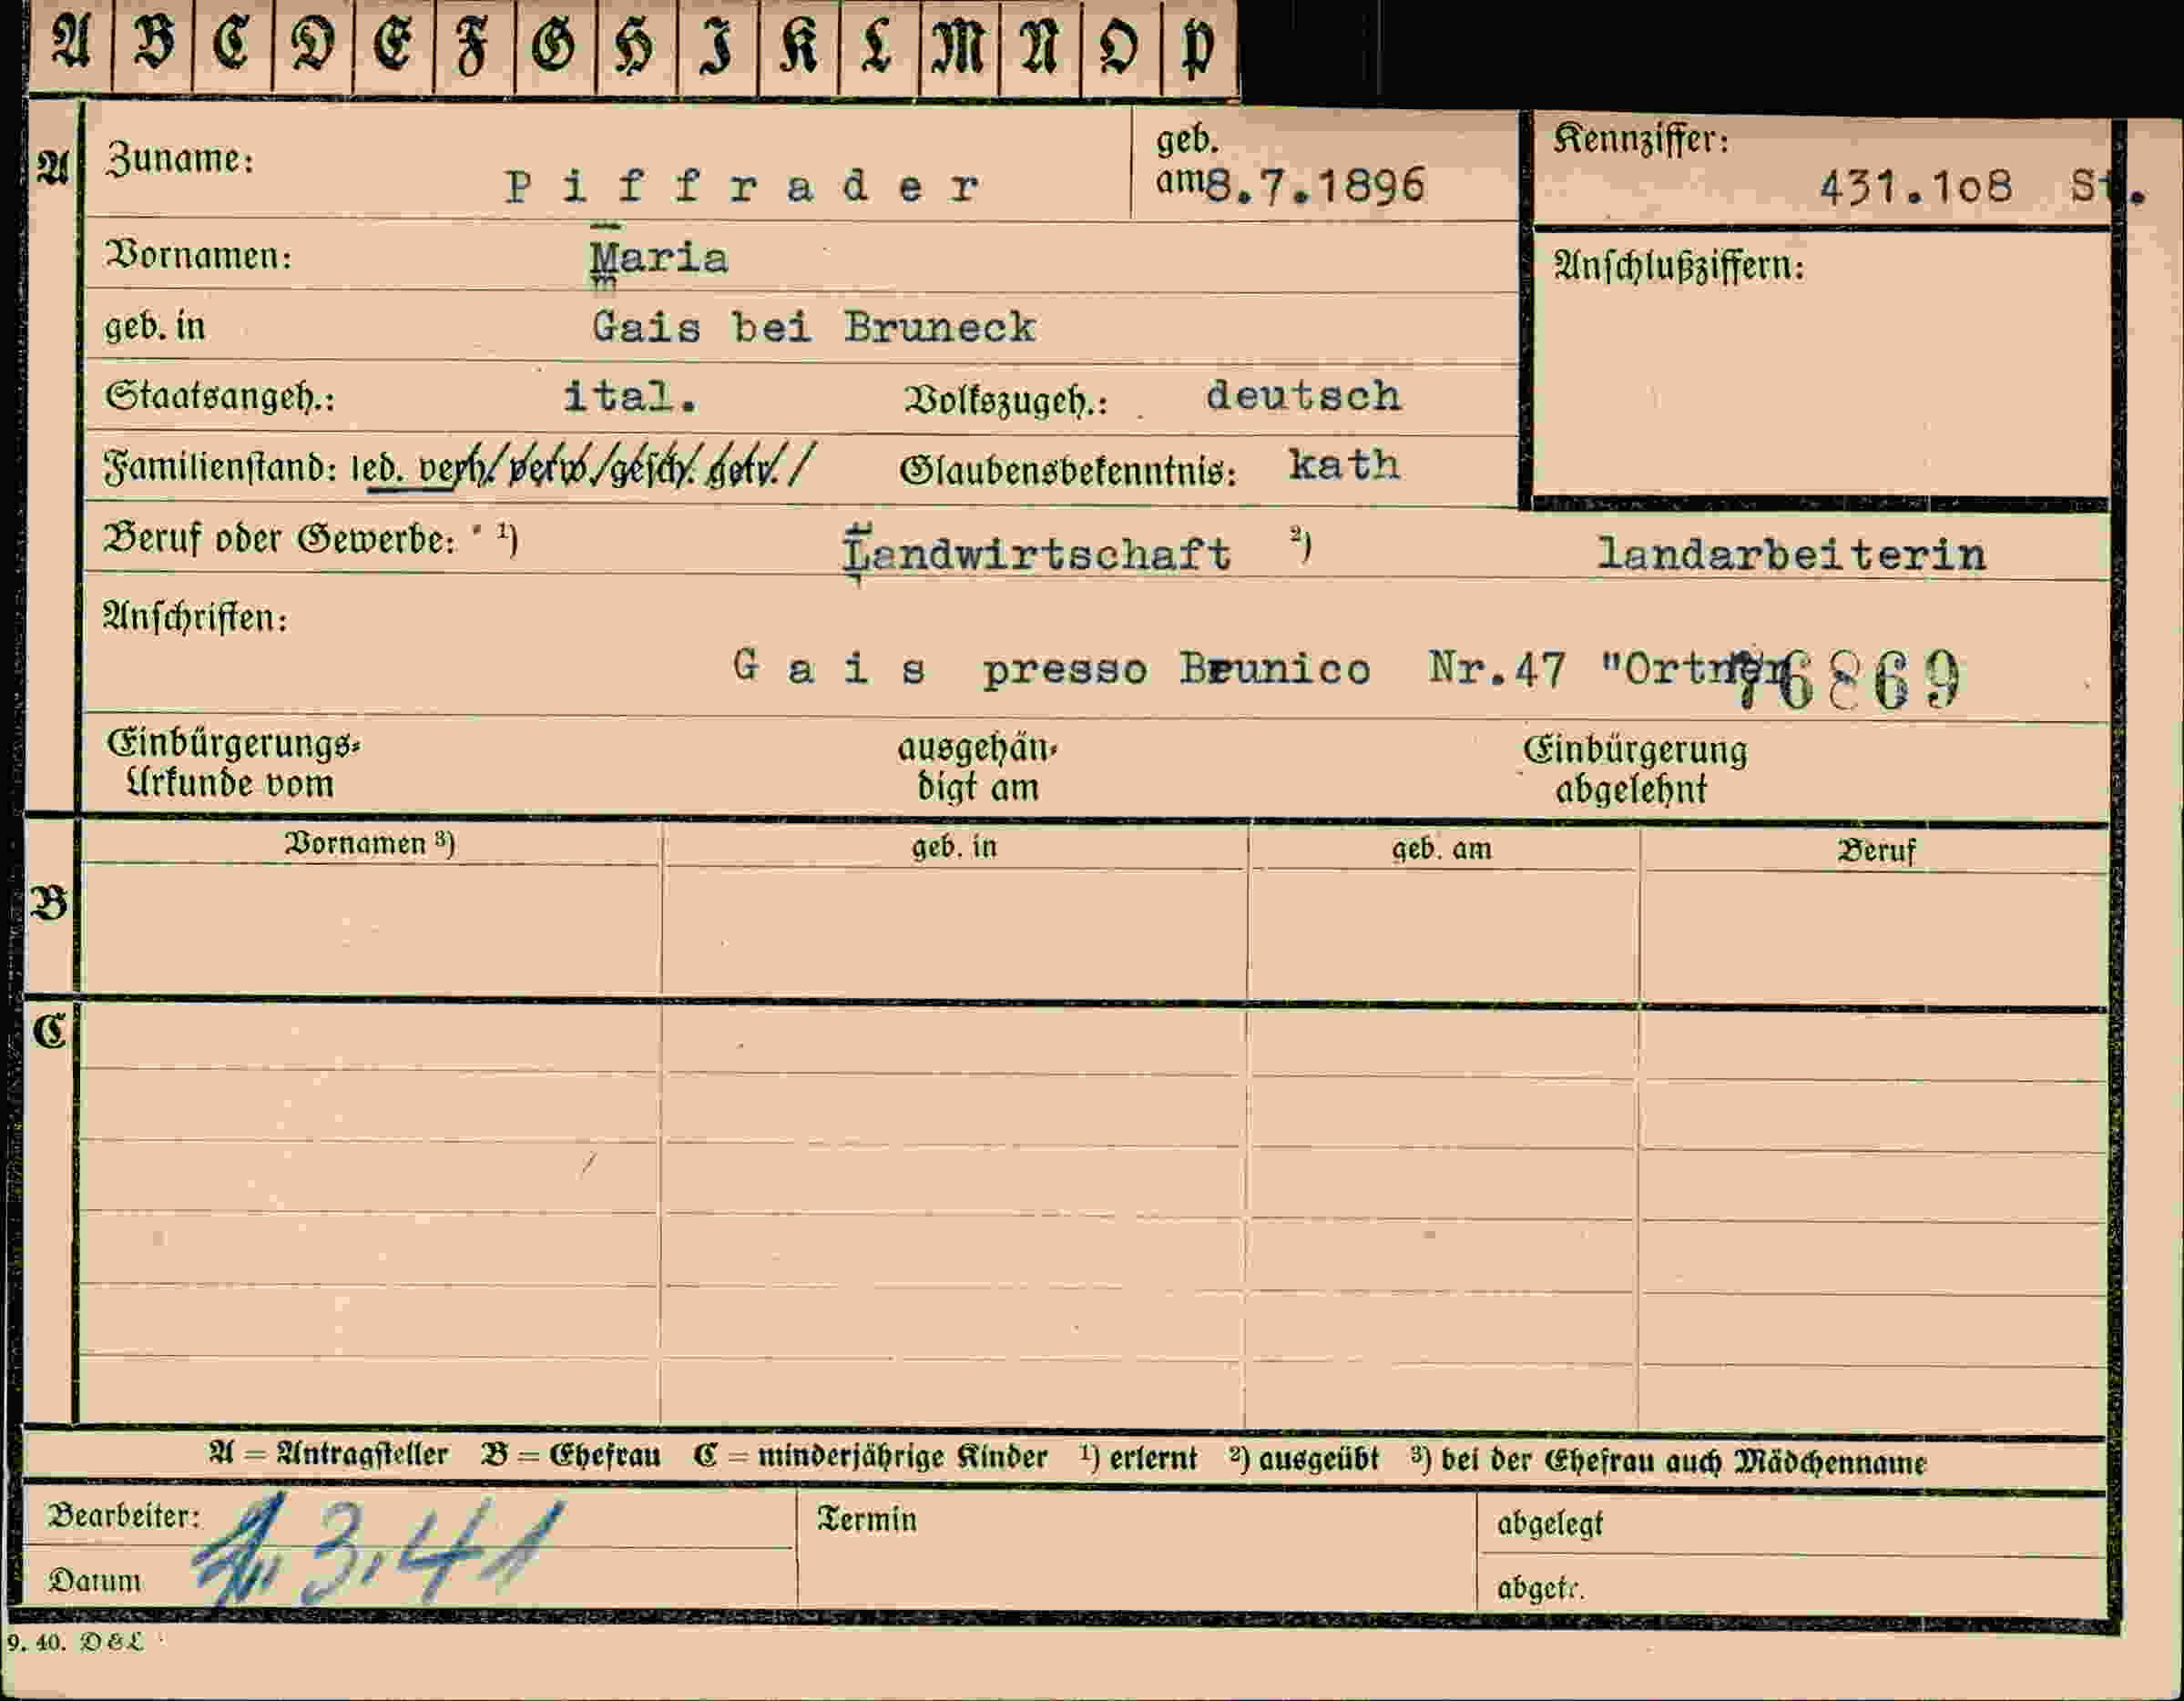 A B C D E F G H I K L M N O P
A Zuname: Piffrader geb. am 8.7.1896 Kennziffer: 431.108 St.
Vornamen: Maria Anschlußziffern:
geb. in Gais bei Bruneck
Staatsangeh.: ital. Volkszugeh.: deutsch
Familienstand: led. verh. verw. gesch. getr. Glaubensbekenntnis: kath
Beruf oder Gewerbe: 1) Landwirtschaft 2) landarbeiterin
Anschriften:
Gais presso Brunico Nr.47 "Ortner 76869
Einbürgerungs= ausgehän= Einbürgerung
Urkunde vom digt am abgelehnt
Vornamen 3) geb. in geb. am Beruf
B
C
A = Antragsteller B = Ehefrau C = minderjährige Kinder 1) erlernt 2) ausgeübt 3) bei der Ehefrau auch Mädchenname
Bearbeiter: Termin abgelegt
Datum 3.41 abgetr.
9. 40. D & L